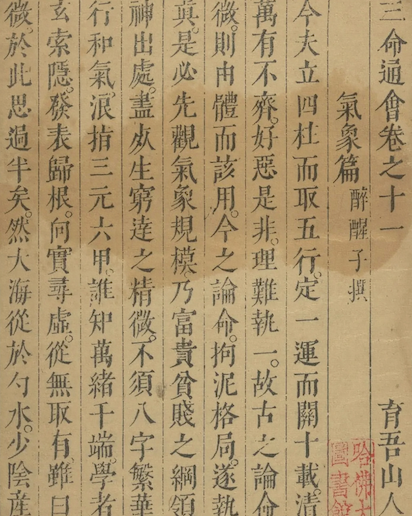 三命通會卷之十一
育吾山人
氣象篇 醉醒子撰
今夫立四柱而取五行。定一運而關十載。清
萬有不齊。好惡是非。理難執一。故古之論命
微。則由體而該用。今之論命。拘泥格局。遂執
眞。是必先觀氣象規模。乃富貴貧賤之綱領
神出處。盡死生窮達之精微。不須八字繁華
行和氣。浪指三元六甲。誰知萬緒千端。學者
玄索隱。發表歸根。何實尋虛。從無取有。雖曰
微。於此思過半矣。然大海從於勺水。少陰産
哈佛大
圖書館